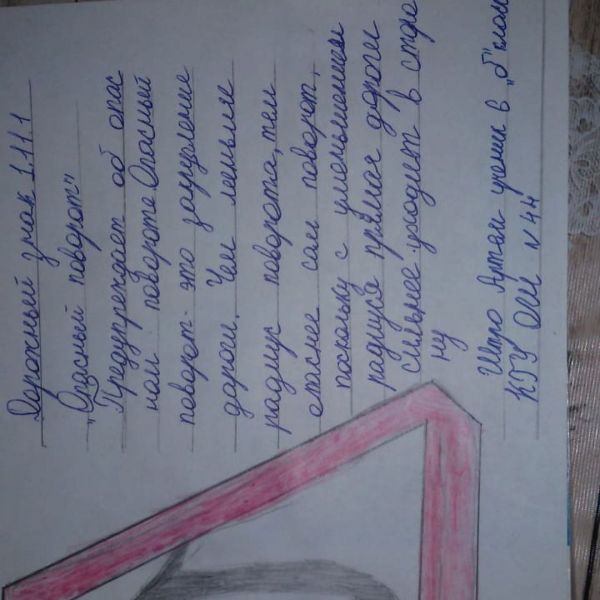 Дорожный знак 1.11.1
„Опасный поворот"
Предупреждает об опас
ном повороте Опасный
поворот- это закругление
дороги. Чем меньше
радиус поворота, тем
опаснее сам поворот,
поскольку с уменьшением
радиуса прямая дороги
сильнее уходит в сторо
ну
Артём ученик 8 „б" класс
КГУ ОШ №44